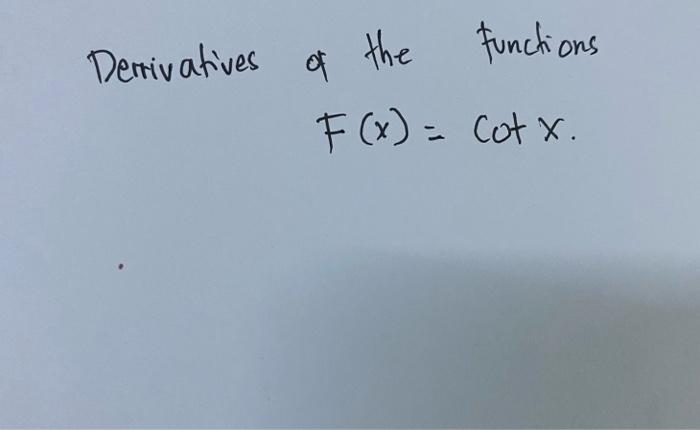 Derrivatives of the functions
F(x) = Cot x.